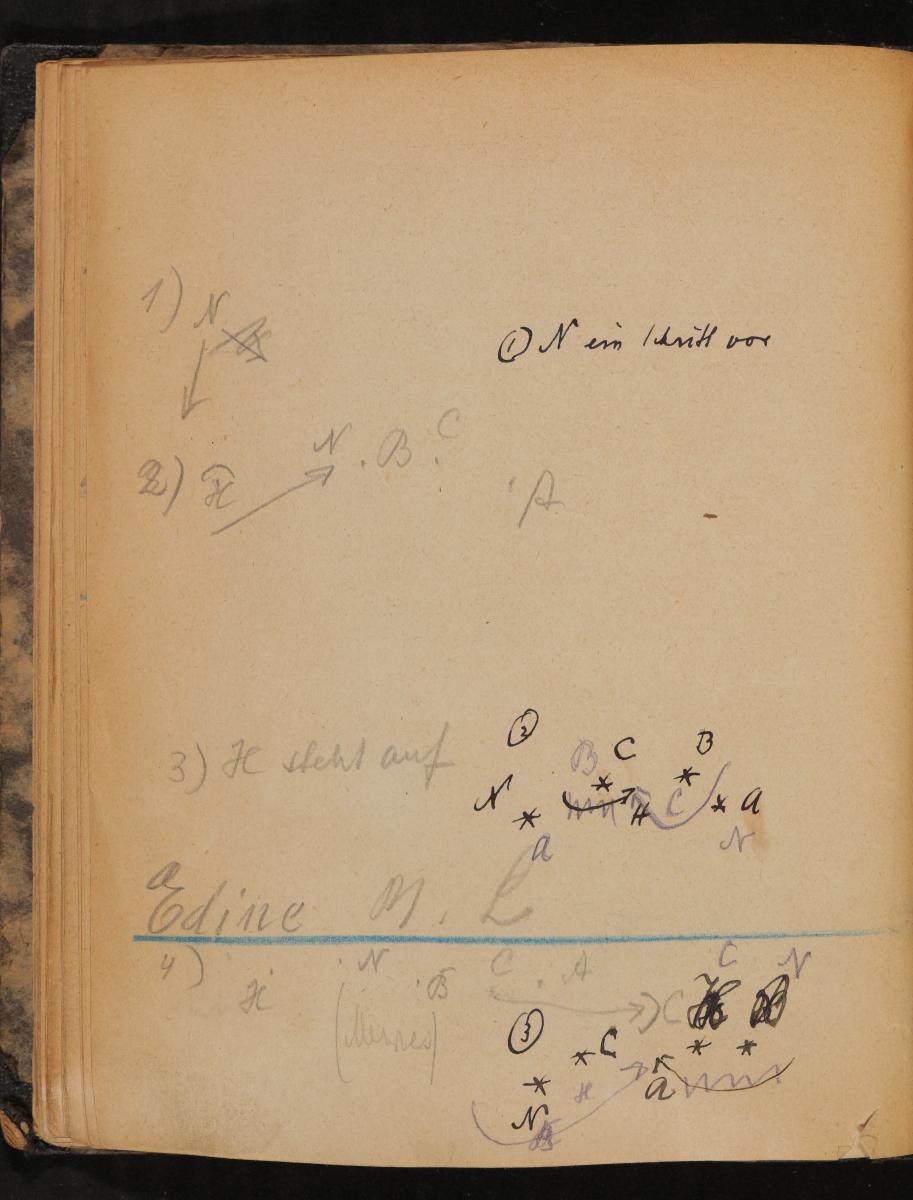 1) N
① N ein Schritt vor
2) H N . B . C
A
3) H steht auf
②
B C B
N H C A
a N
a
Edine M. L
4) H N B C A C
C N
③ C
H a
N